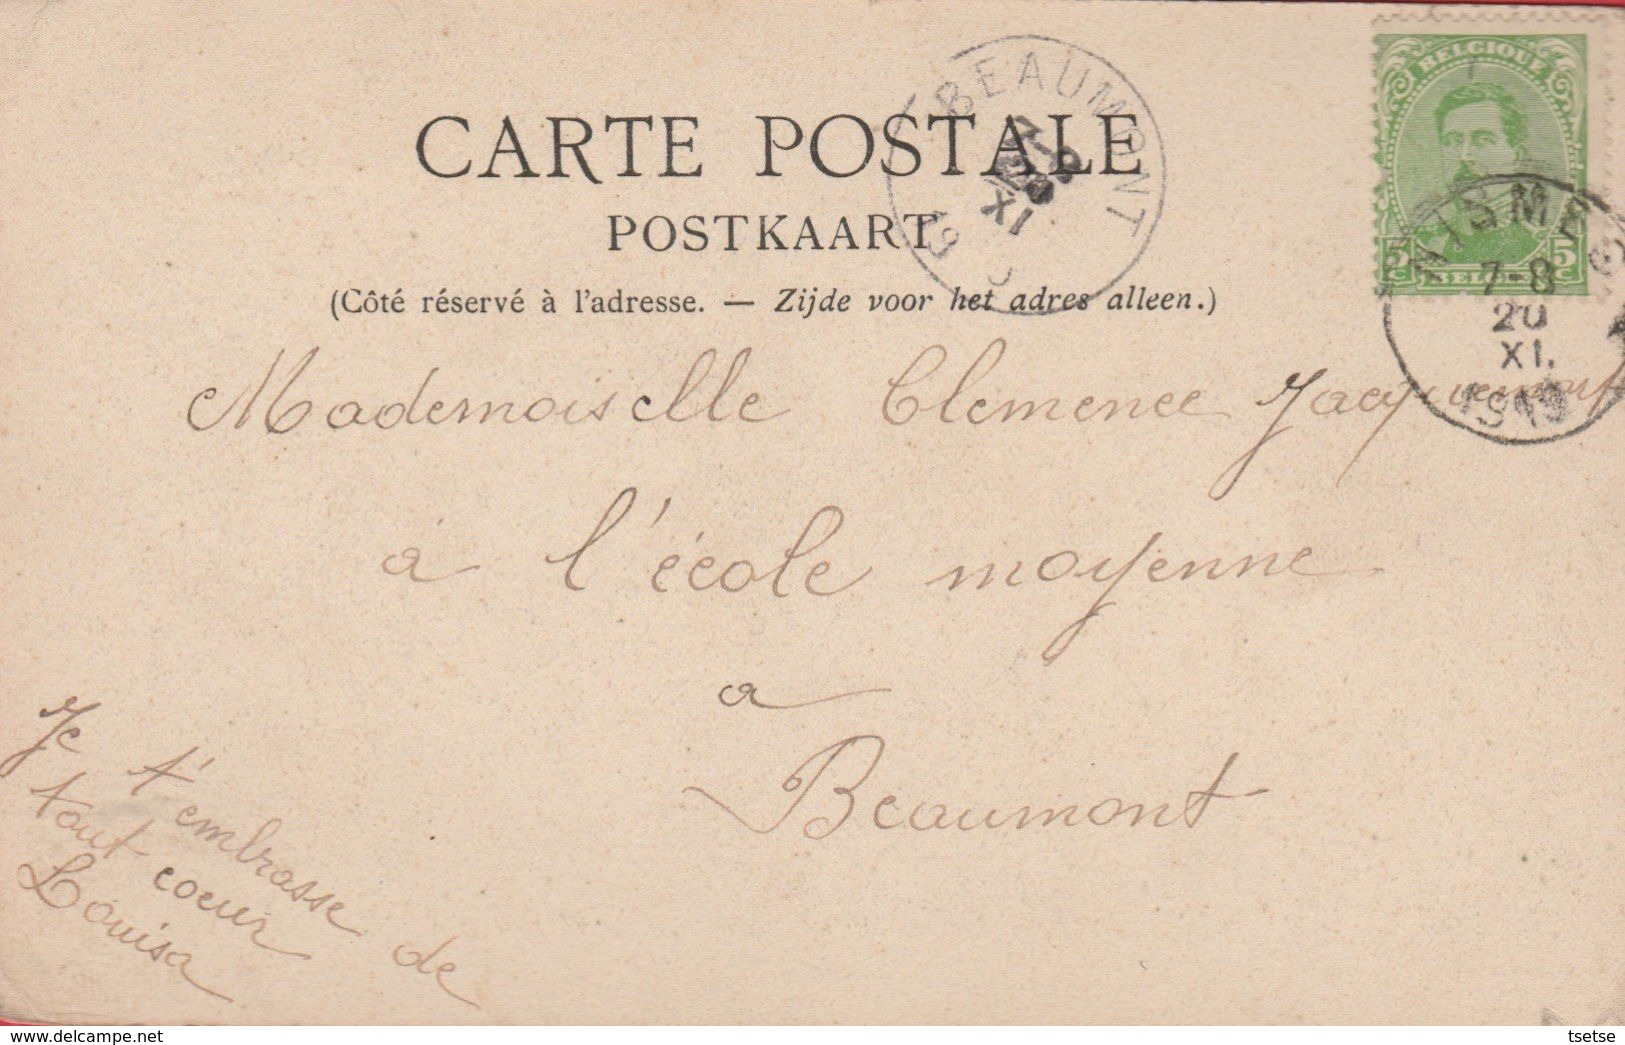 CARTE POSTALE
POSTKAART
(Côté réservé à l'adresse. — Zijde voor het adres alleen.)
BEAUMONT
XI
19
BELGIQUE
5c 5c
BELGIË
7-8
20
XI.
1919
Mademoiselle Clemence Jacquemart
à l'école moyenne
a
Beaumont
Je t'embrasse de
tout coeur
Louisa
www.delcampe.net
tsetse